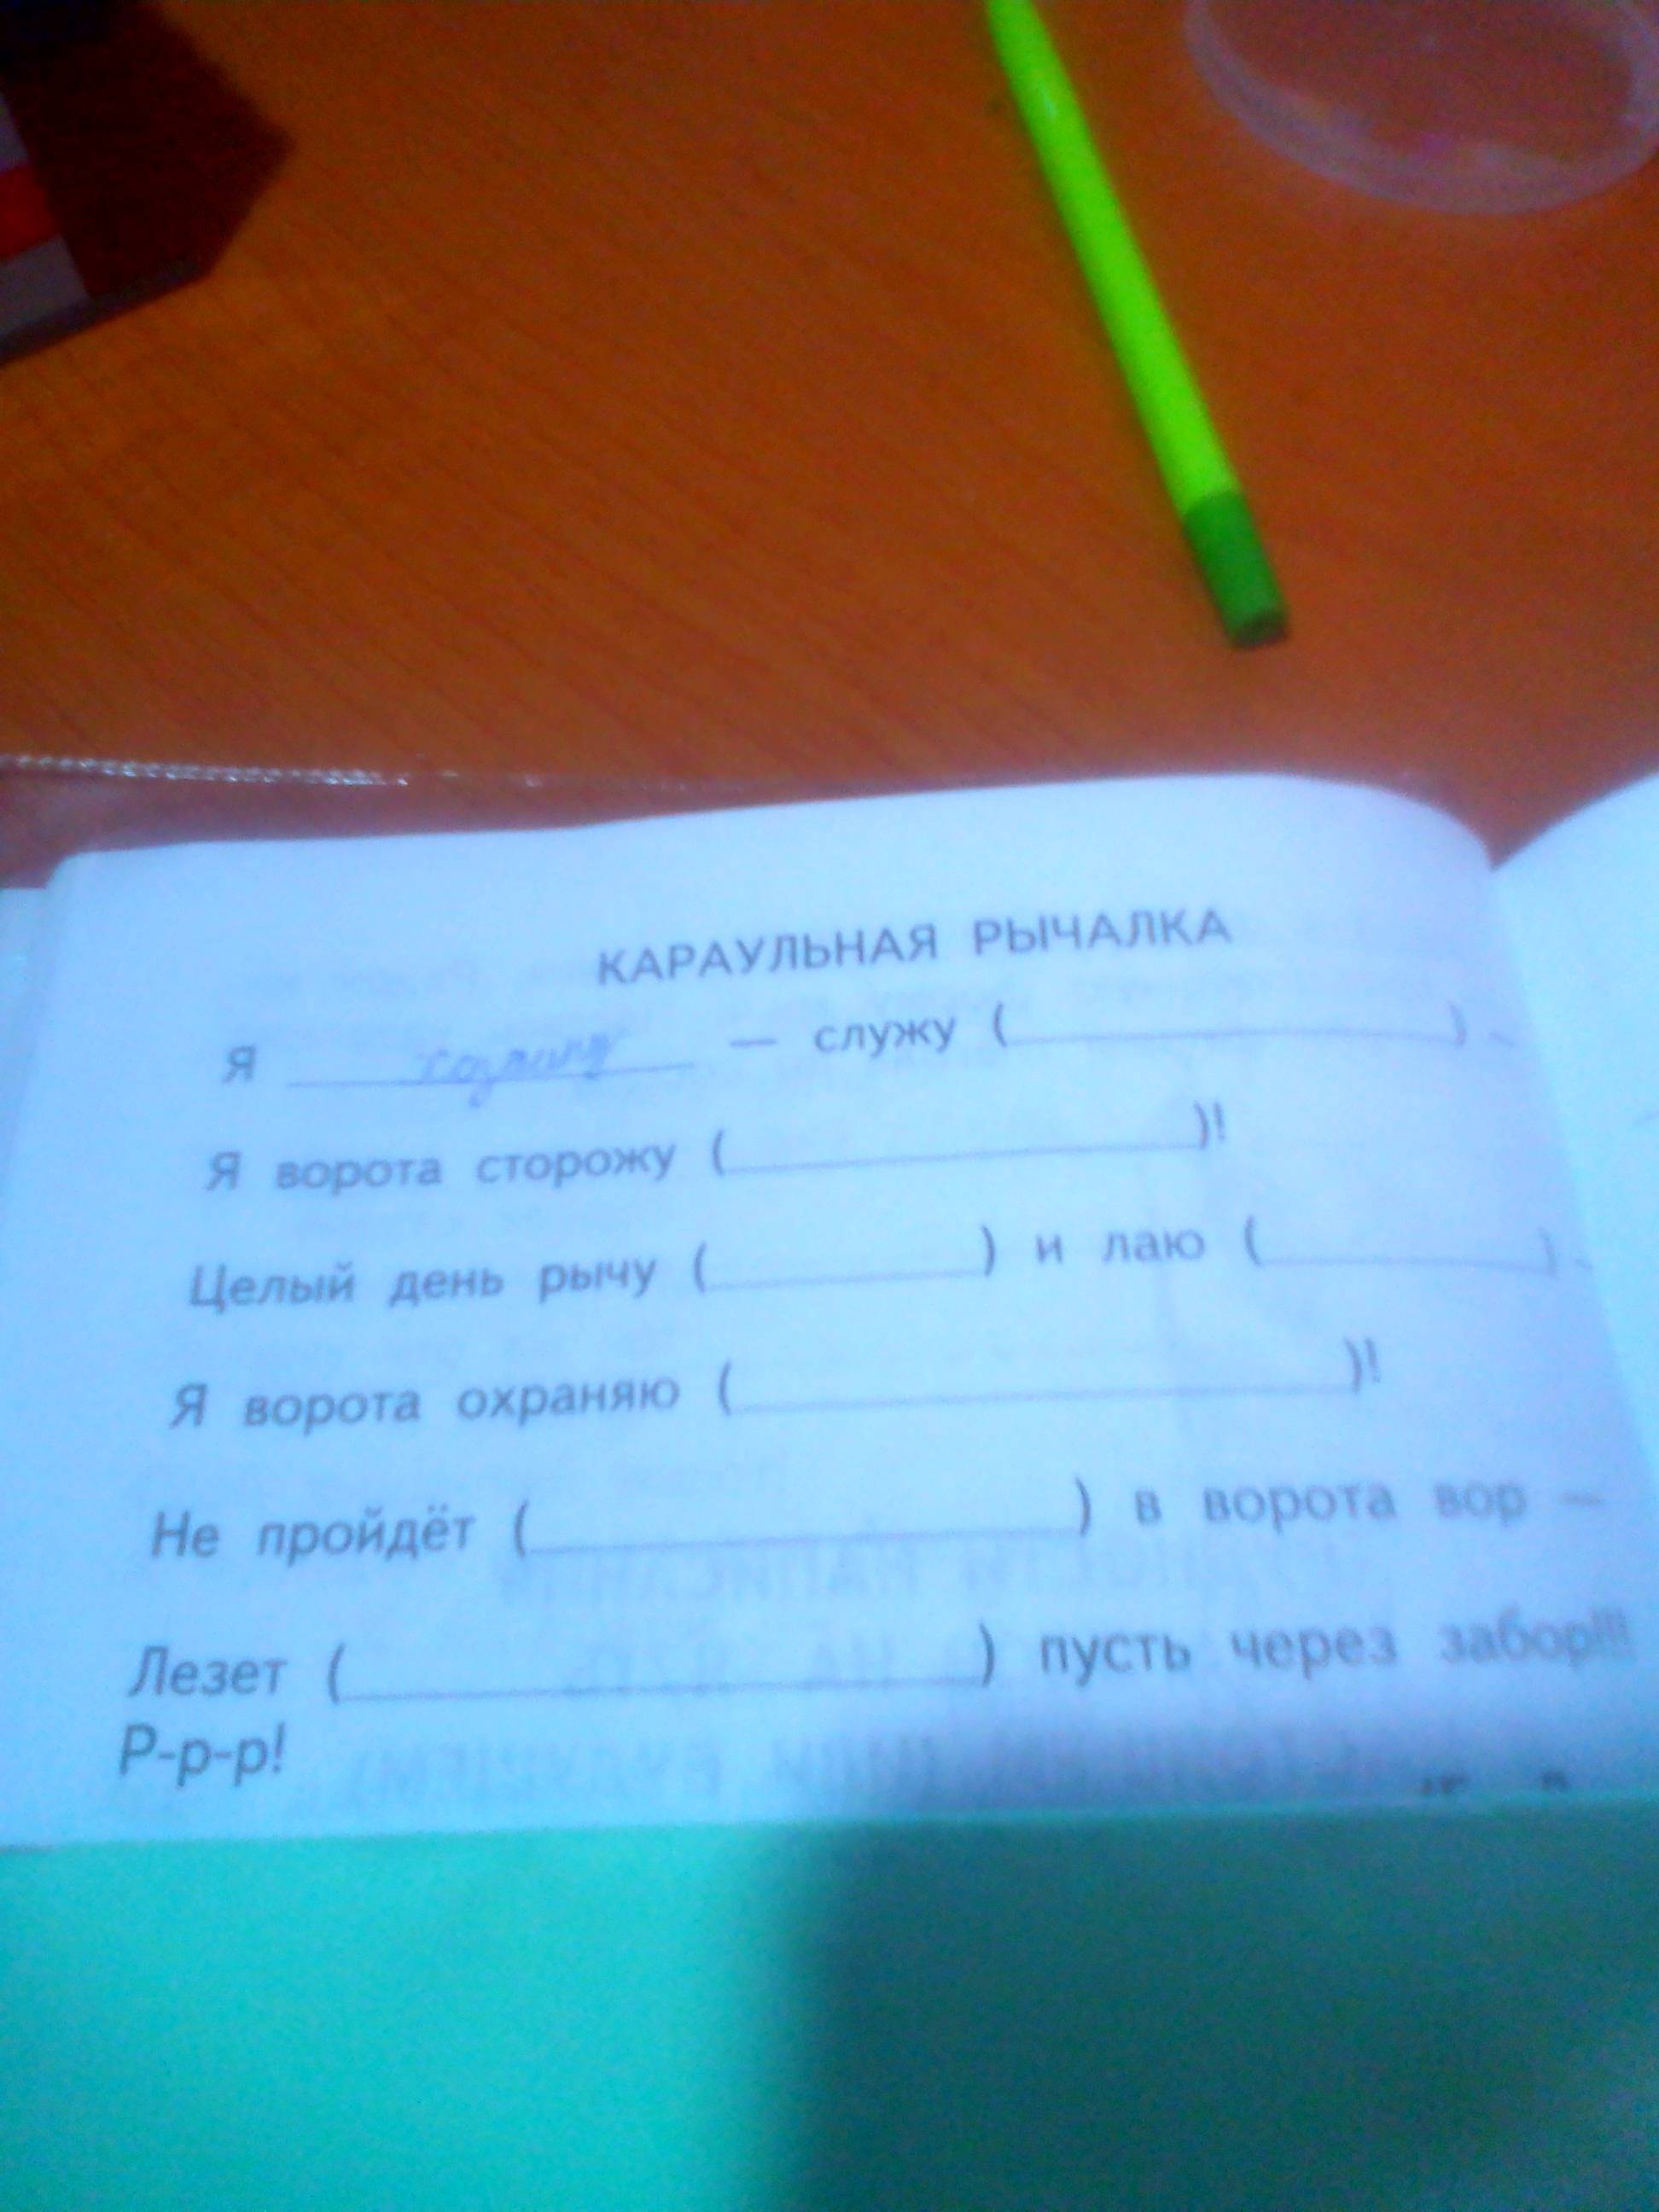 КАРАУЛЬНАЯ РЫЧАЛКА
Я ________ — служу (________).
Я ворота сторожу (________)!
Целый день рычу (________) и лаю (________).
Я ворота охраняю (________)!
Не пройдёт (________) в ворота вор —
Лезет (________) пусть через забор!!!
Р-р-р!